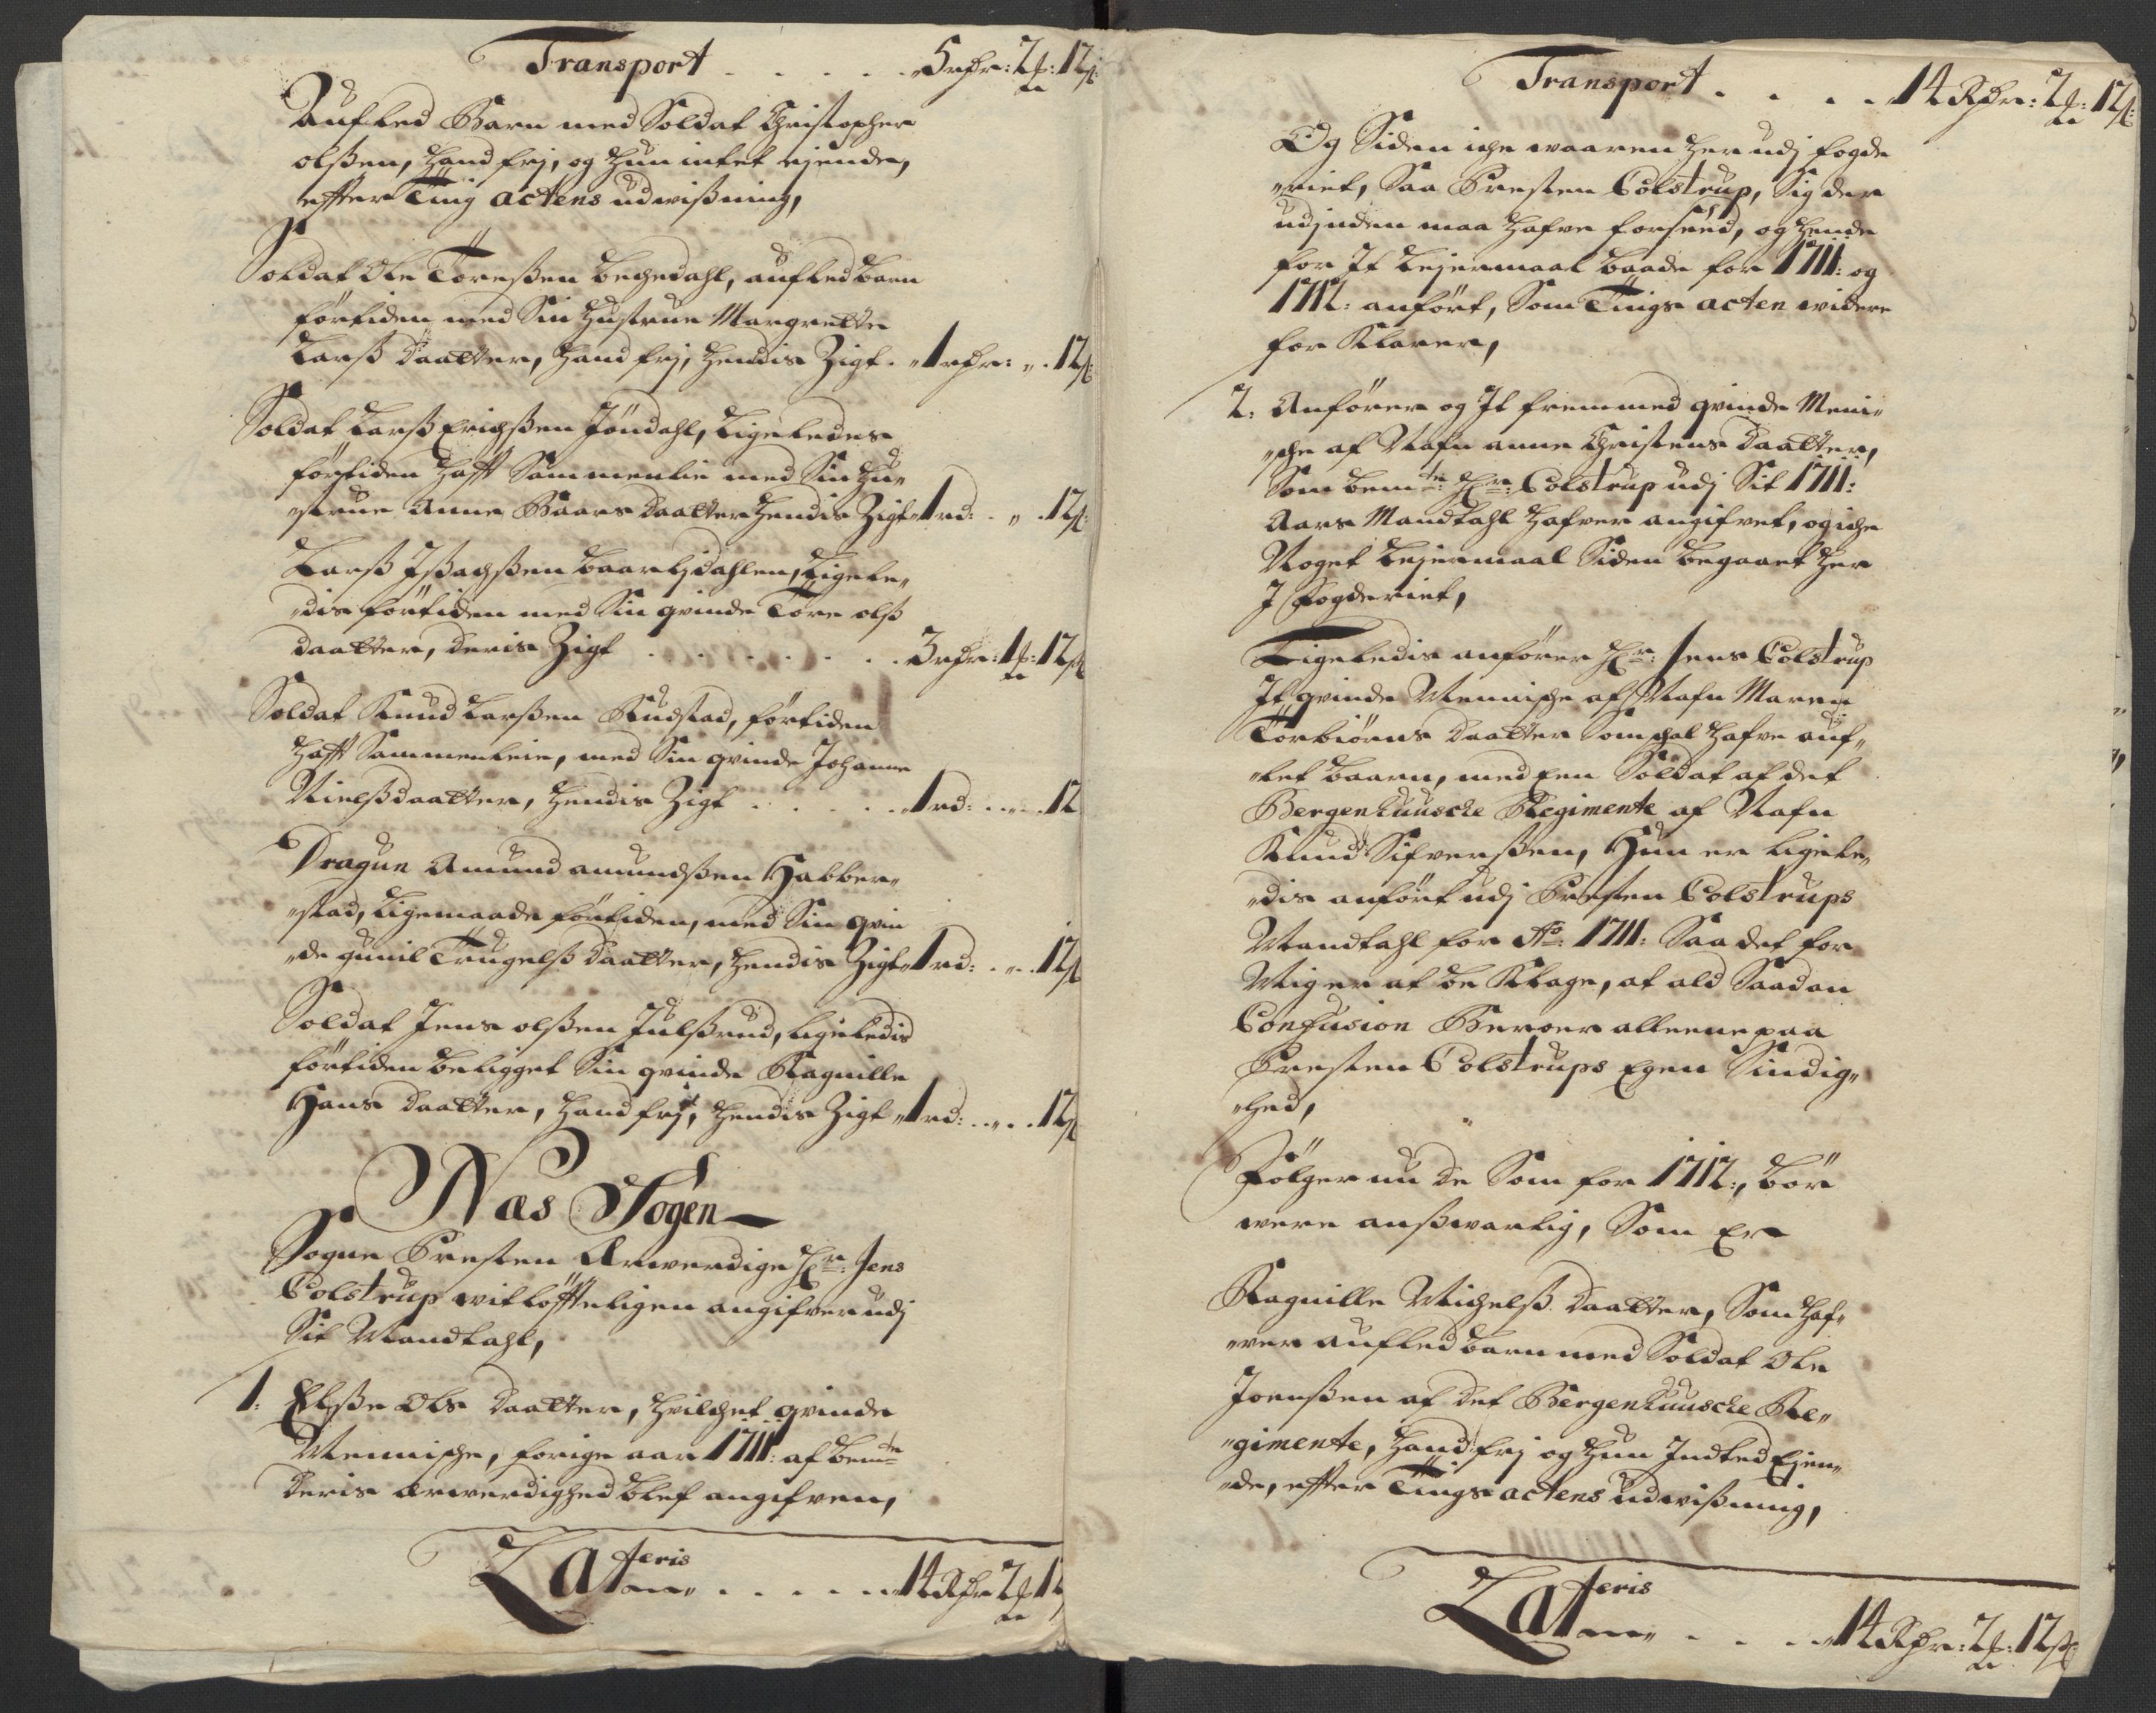 Transport . . . . . 5 rdr: 2 ƒ: 12 ß
Aufled Barn med Soldat Christopher
olßen, Hand frj, og Hun intet ejende,
effter Ting actens udwißning,
Soldat Ole Toreßen Bechedahl, aufled barn
förtiden med Sin Hustrue Margrette
Larß Daatter, Hand frj, Hendis Zigt . 1 rdr: „ . 12 ß
Soldat Larß Erichßen Jöndahl, Ligeledes
förtiden Hafft Sammenleie med Sin Hu„
„strue Anne Baars Daatter Hendis Zigt 1 rd: . „ . 12 ß
Larß Jßachßen Baarljdahlen, Ligele„
„dis förtiden med Sin qvinde Tore olß
daatter, deris Zigt . . . . . . . 3 rdr: 1 ƒ: 12 ß
Soldat Knud Larßen Rudstad, förtiden
Hafft Sammenleie, med Sin qvinde Johanne
Nielßdaatter, Hendis Zigt . . . . . 1 rd: . . „ . . 12
Dragun Amund amundßen Habber„
„stad, Ligemaade förtiden, med Sin qvin
„de gunil Trugelß Daatter, Hendis Zigt 1 rd: . „ . 12 ß
Soldat Jens olßen Julßrud, ligeledis
förtiden beligget Sin qvinde Ragnille
Hans Daatter, Hand frj, Hendis Zigt 1 rd: . . „ . . 12 ß
Næs Sogen
Sogne Presten Ærwerdige Hr: Jens
Colstrup witløffteligen angifver udj
Sit Mandtahl,
1: Elße Ols Daatter, Hvilchet qvinde
Mennische, forige aar 1711: af bemte
Deris ærwerdighed blef angifven,
Lateris . . . . . 14 Rdr 2 ƒ 12
Transport . . . . 14 Rdr: 2 ƒ: 12 ß
Og Siden iche waaren her udj fogde
„riet, Saa Presten Colstrup, Sig der
udjnden maa Hafve forseed, og Hende
for Jt Lejermaal baade for 1711: og
1712: anfört, Som Tings acten widere
for Klarer,
2: Anförer og Jt fremmed qvinde Meni„
„sche af Nafn anne Christens Daatter,
Som bemte: Hr: Colstrup udj Sit 1711:
Aars Mandtahl Hafver angifvet, og iche
Noget Lejermaal Siden begaaet her
J Fogderiet,
Ligeledis anförer Hr: Jens Colstrup
Jt qvinde Mennische af Nafn Maren
Törbiörns Daatter Som schal Hafve auf„
„let baarn, med Een Soldat af det
Bergenhuusche Regimente af Nafn
Knud Sifverßen, Hun er ligele„
„dis anfört udj Presten Colstrups
Mandtahl for Ao: 1711: Saa det for
Mig er at be Klage, at ald Saadan
Confusion Beroer alleene paa
Presten Colstrups Egen Sindig„
„hed,
Fölger nu de Som for 1712:, bör
were anßwarlig, Som Er
Ragnille Michelß Daatter, Som Haf„
„ver aufled barn med Soldat Ole
Joenßen af det Bergenhuusche Re„
„gimente, Hand frj og Hun Indted Ejen„
„de, effter Tings actens udwißning,
Lateris . . . . 14 Rdr: 2 ƒ: 12 ß